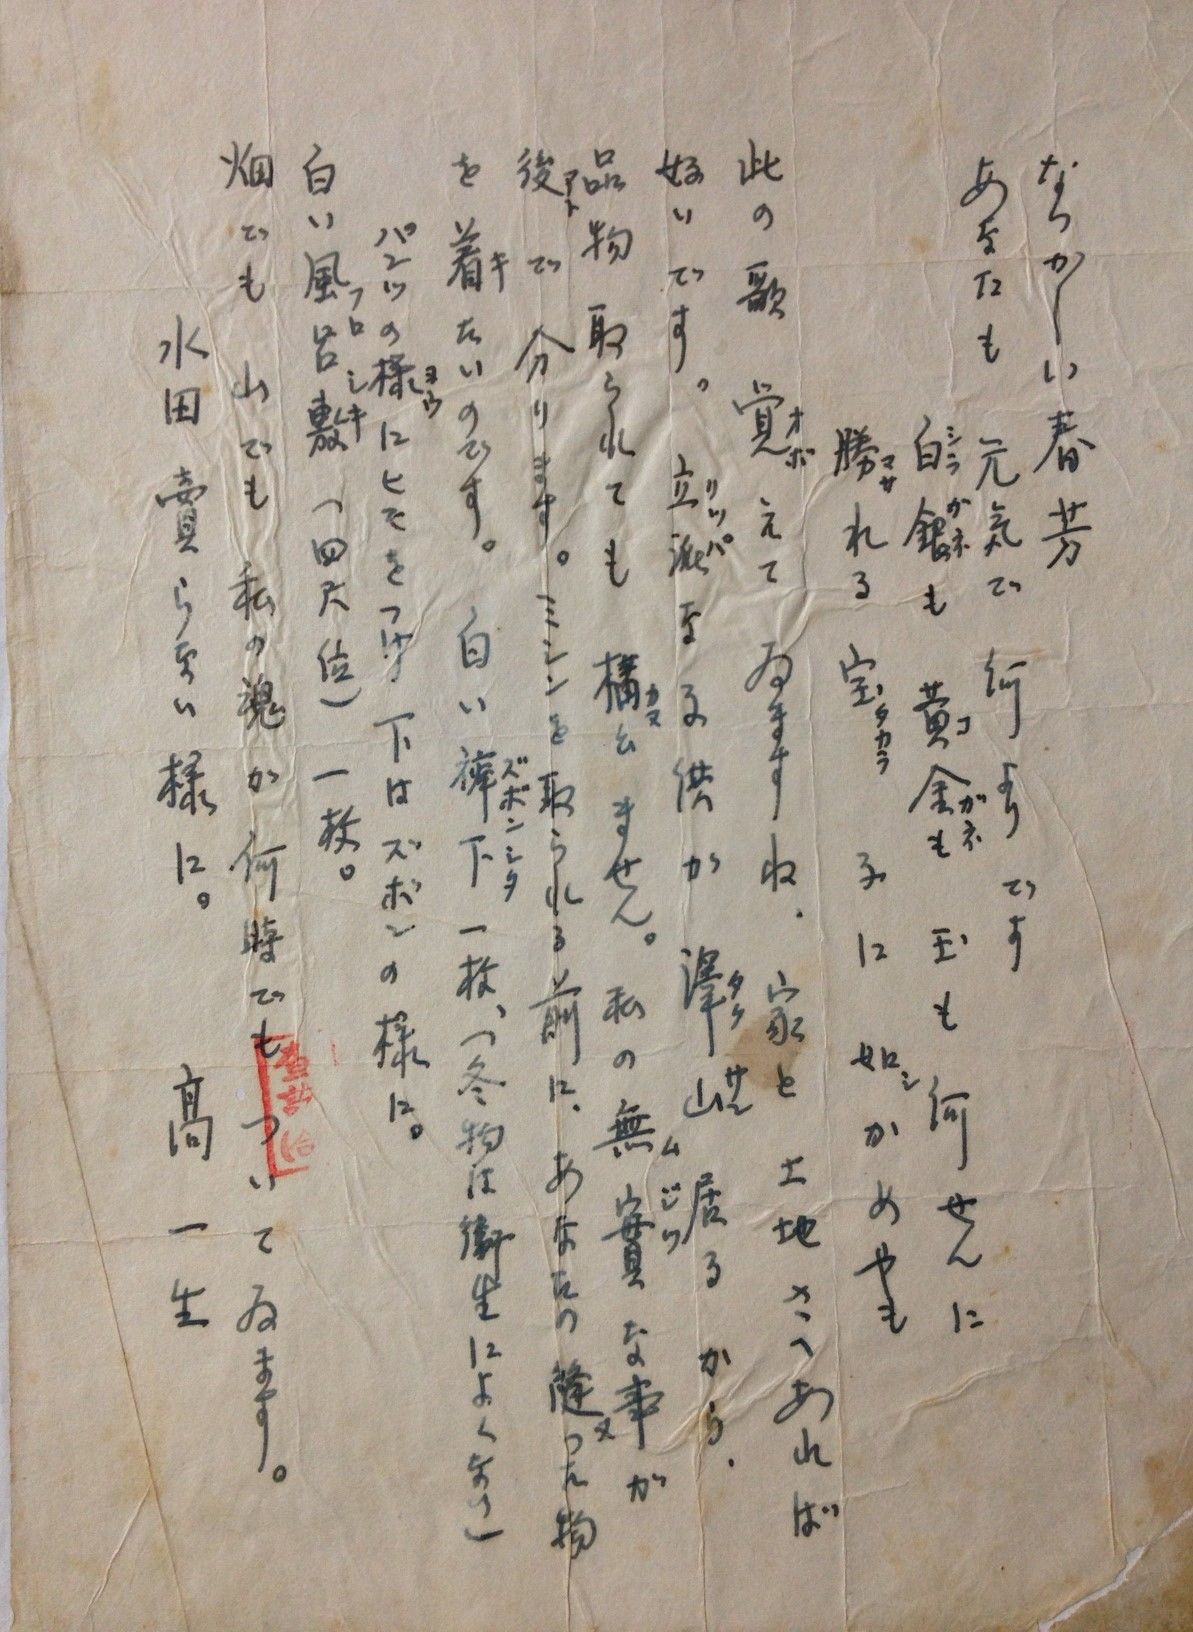 なつかしい春芳
あなたも 元気で 何よりです
白銀も 黄金も 玉も 何せんに
シラガネ コガネ
勝れる 宝 子に 如かめやも
マサ タカラ シ
此の歌 覚えて ゐますね、家と 土地さへあれば
オボ
好いです。立派な子供が 澤山 居るから、
リッパ タクサン
品物 取られても 構ひません。私の無實な事が
カマ ムジツ
後で 分ります。ミシンを取られる前に、あなたの縫った物
アト ヌ
を 着たいのです。白い褲下 一枚、(冬物は衛生によくない)
キ ズボンシタ
パンツの様にヒモをつけ 下はズボンの様に。
ヨウ
白い風呂敷 (四尺位) 一枚。
フロシキ
畑でも 山でも 私の魂が 何時でもついてゐます。
水田 賣らない様に。 高一生
査訖